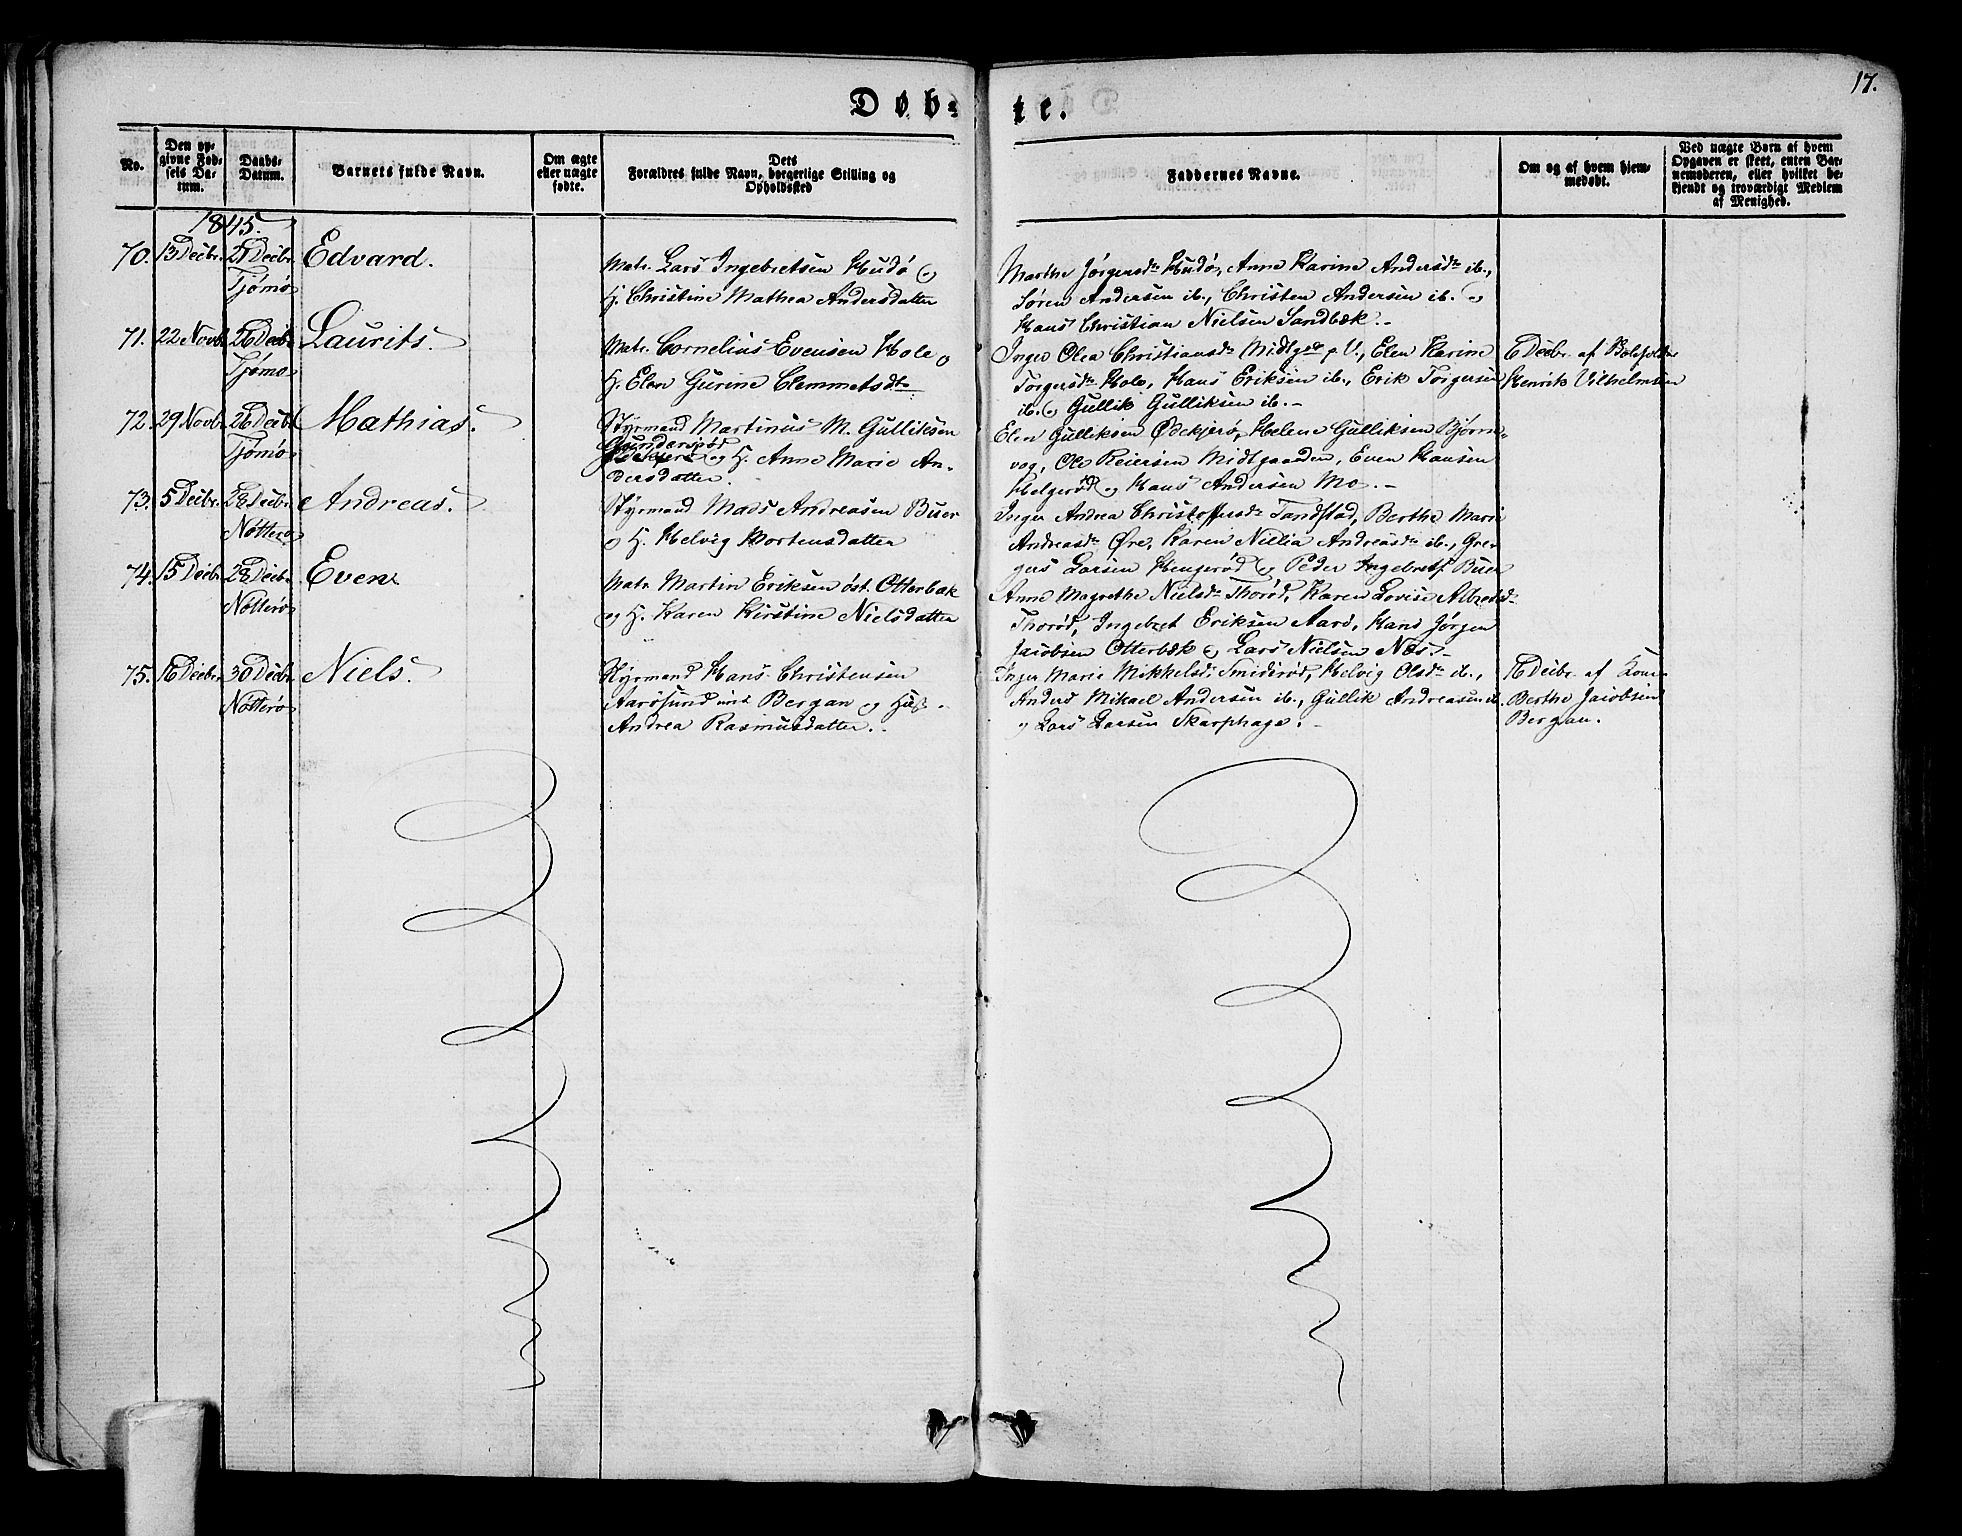 Døb-
te.
17.
No.
Den op-
givne Fød-
sels Da-
tum.
Daabs-
Datum.
Barnets fulde Navn.
Om ægte
eller uægte
fødte.
Dets
Forældres fulde Navn, borgerlige Stilling og
Opholdssted
Faddernes Navne.
Om og af hvem hjem-
medøbt.
Ved uægte Børn af hvem
Opgaven er skeet, enten Bar-
nemoderen, eller hvilket be-
kjendt og troværdigt Medlem
af Menighed.
1845.
70. 13 Decbr. 21 Decbr. Tjømø
Edvard.
Matr. Lars Ingebretsen Hudø og
H. Christine Mathea Andersdatter
Marthe Jørgensdtr Hudø, Anne Karine Andersdtr ib.,
Søren Andersen ib., Christen Andersen ib. og
Hans Christian Nielsen Sandbæk.-
71. 22 Novbr. 26 Decbr. Tjømø
Laurits.
Matr. Cornelius Evensen Hole og
H. Elen Gurine Clemmetsdtr
Inger Olea Christiansdtr Midtgrd p V., Elen Karine
Torgersdtr Hole, Hans Eriksen ib., Erik Torgersen
ib. og Gullik Gulliksen ib.-
Decbr. af
Henrik Vilhelmsen
72. 29 Novbr. 26 Decbr. Tjømø
Mathias.
Styrmand Martinus M. Gulliksen
og H. Anne Marie An-
dersdatter.
Elen Gulliksen Ødekjær, Helene Gulliksen Bjørne-
vog, Ole Reiersen Midtgaarden, Even Hansen
Helgerød og Hans Andersen Mo.-
73. 5 Decbr. 28 Decbr. Nøtterø
Andreas.
Styrmand Mads Andreasen Buer
og H. Helvig Mortensdatter
Inger Andrea Christoffersdtr Tandstad, Berthe Marie
Andreasdtr Øre, Karen Nielia Andreasdtr ib., Gre-
gers Larsen Hengerød og Peder Ingebretsen Buer
74. 15 Decbr. 28 Decbr. Nøtterø
Even
Matr. Martin Eriksen øst. Otterbæk
og H. Karen Kirstine Nielsdatter
Anne Magrethe Nielsdtr Thorød, Karen Lovise Albretsdtr
Thorød, Ingebret Eriksen Aarø, Hans Jørgen
Jacobsen Otterbæk og Lars Nielsen Næs.-
75. 16 Decbr. 30 Decbr. Nøtterø
Niels.
Styrmand Hans Christensen
Aarøsund Bergan og Hust.
Andrea Rasmusdatter.
Inger Marie Mikkelsdtr Smidsrød, Helvig Olsdtr ib.,
Anders Mikael Andersen ib., Gullik Andreasen ib.
og Lars Larsen Skarphage.
Decbr. af Kone
Berthe Jacobsen
Bergan.